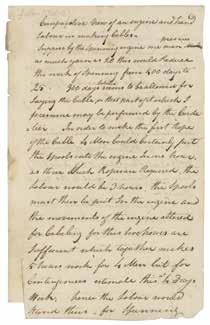 Comparative View of an engine and hand
Labour in making Cables
Suppose by the Spinning engine one man
as much yarn as 20 this would reduce
the work of Spinning from 400 days to
25 300 days seems to be allowed for
laying the Cable in this part of it which I
presume may be performed by the
In order to make the first Rope
of the Cable 4 Men could certainly put
the Spools into the engine in one hour,
as three such Ropes are Required the
labour would be 3 hours the Spools
must then be put in the engine and
the movements of the engine altered
for Cabeling for this two hours are
sufficient which together makes
5 hours work for 4 Men but for
this ½ Days
Work hence the labour would
Stand thus for Spinning